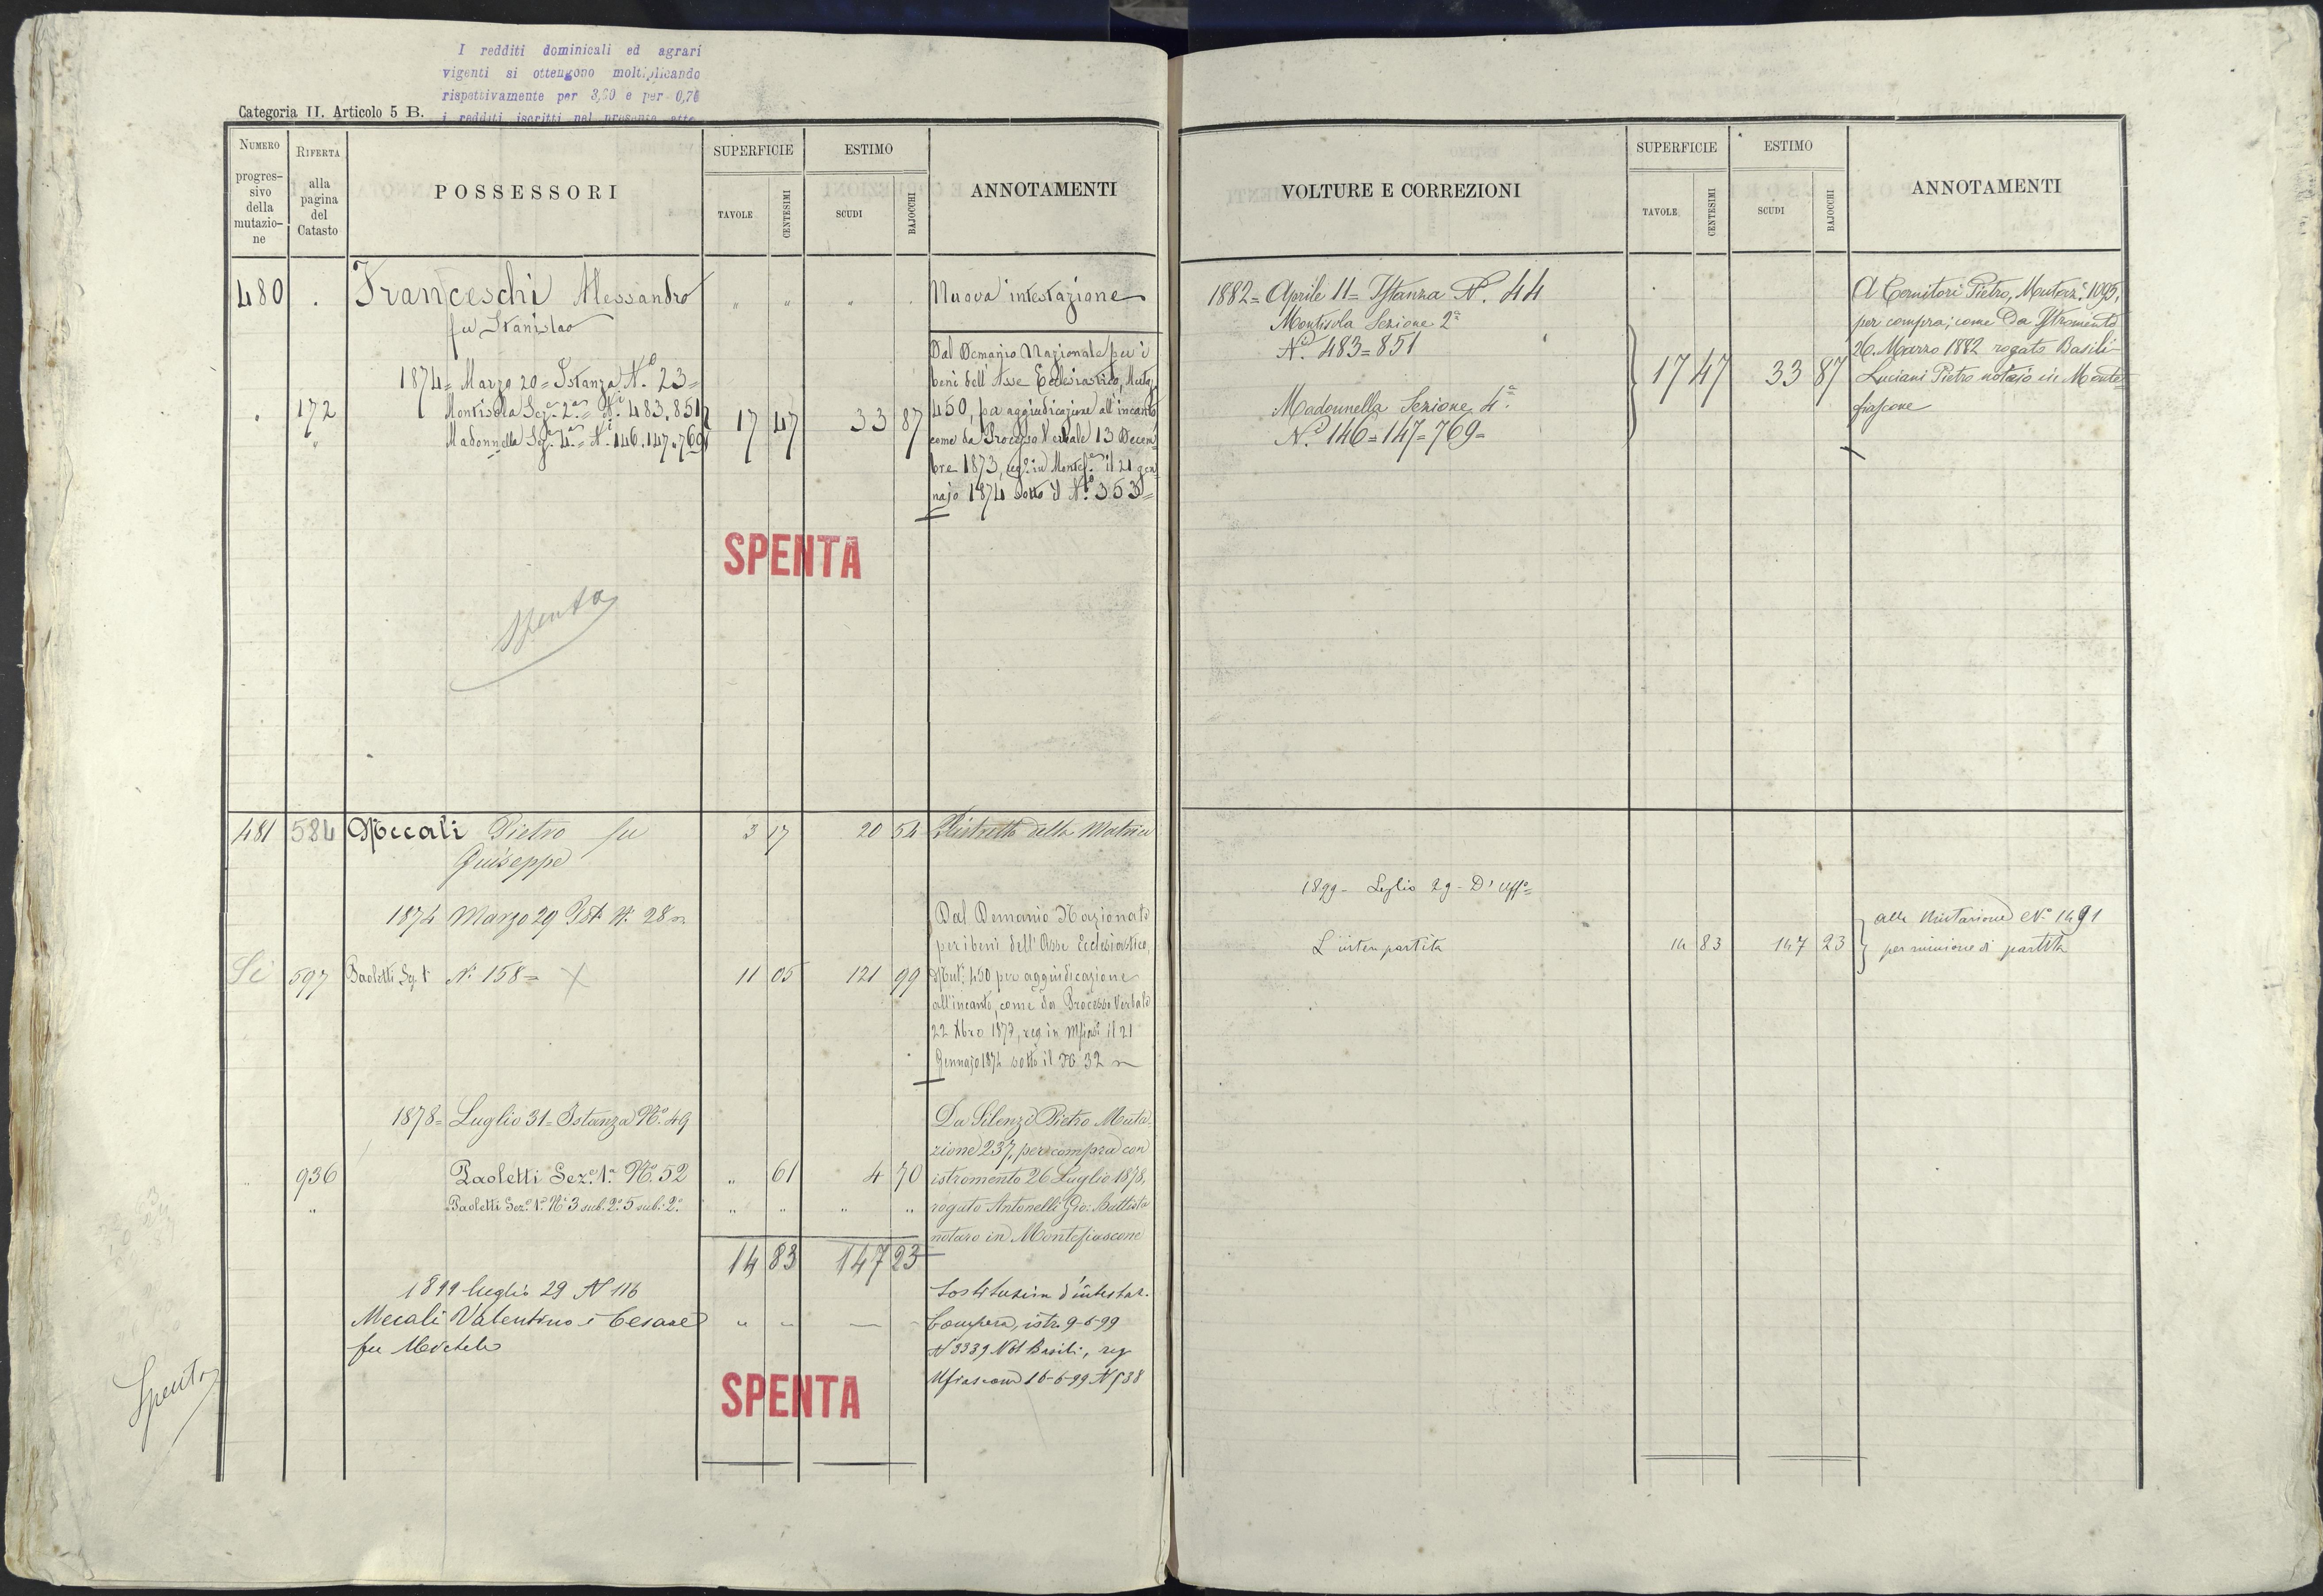 I redditi dominicali ed agrari
vigenti si ottengono moltiplicando
rispettivamente per 3,60 e per 0,76
i redditi iscritti nel presente atto
Categoria II. Articolo 5 B.
NUMERO progressivo della mutazione
RIFERTA alla pagina del Catasto
POSSESSORI
SUPERFICIE
TAVOLE
CENTESIMI
ESTIMO
SCUDI
BAJOCCHI
ANNOTAMENTI
480 Franceschi Alessandro " " " Nuova intestazione
fu Stanislao
1874= Marzo 20= Istanza N.º 23=
172 Montisola Sez.e 2.a= N.i 483.851
" Madonnella Sez.e 4.a= N.i 146.147.769
17 47 33 87
Dal Demanio Nazionale per i
beni dell'Asse Ecclesiastico, Mutaz.
450, per aggiudicazione all'incanto
come da Processo Verbale 13 Decem
bre 1873, reg.o in Montef.e il 21 gen
najo 1874 sotto il N.º 353=
SPENTA
Spenta
481 584 Mecali Pietro fu 3 17 20 54 Ristretto della Matrice
Giuseppe
1874 Marzo 29 Ist. N. 28
Si 597 Paoletti Sez. 1 N.º 158= X 11 05 121 99
Dal Demanio Nazionale
per i beni dell'Asse Ecclesiastico,
Mut. 450 per aggiudicazione
all'incanto, come da Processo Verbale
22 Xbre 1873, reg in Mfias. il 21
Gennajo 1874 sotto il N. 32
1878= Luglio 31= Istanza N.º 49
936 Paoletti Sez.e 1.a N.º 52 " 61 4 70
" Paoletti Sez.e 1.a N.i 3 sub. 2.º 5 sub. 2.º " " " "
Da Silenzi Pietro Muta-
zione 237, per compra con
istromento 26 Luglio 1878,
rogato Antonelli Gio: Battista
notaro in Montefiascone
14 83 147 23
1899 luglio 29 N 116
Mecali Valentino e Cesare " - — -
fu Michele
Sostituzion d'intestaz.
Compera, istr. 9-6-99
N 3339 Not Basili, reg
Mfiascone 16-6-99 N 538
SPENTA
Spenta
VOLTURE E CORREZIONI
SUPERFICIE
TAVOLE
CENTESIMI
ESTIMO
SCUDI
BAJOCCHI
ANNOTAMENTI
1882= Aprile 11= Istanza N. 44
Montisola Sezione 2.a
N.i 483=851
Madonnella Sezione 4.a
N.i 146=147=769=
17 47 33 87
A Cernitori Pietro, Mutaz.e 1095,
per compra, come da Istromento
26 Marzo 1882 rogato Basili-
Luciani Pietro notaio in Monte=
fiascone
1899- Luglio 29- D'Uff.o=
L'intera partita 14 83 147 23
alla Mutazione N.º 1491
per riunione di partita